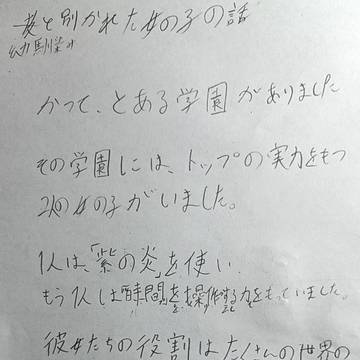 妾と別かれた女の子の話
幼馴染み
かつて、とある学園がありました
その学園には、トップの実力をもつ
2人の女の子がいました。
1人は、「紫の炎」を使い
もう1人は時間を操作する力をもっていました。
彼女たちの役割はたくさんの世界の